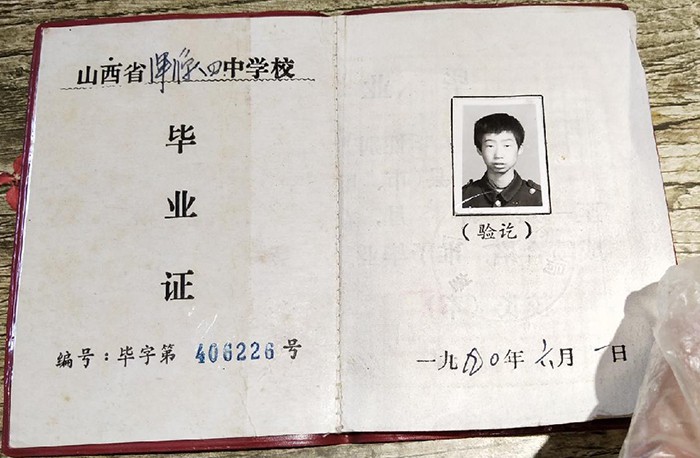 山西省浑源四中学校
毕
业
证
编号:毕字第 406226 号
(验讫)
一九九〇年六月一日